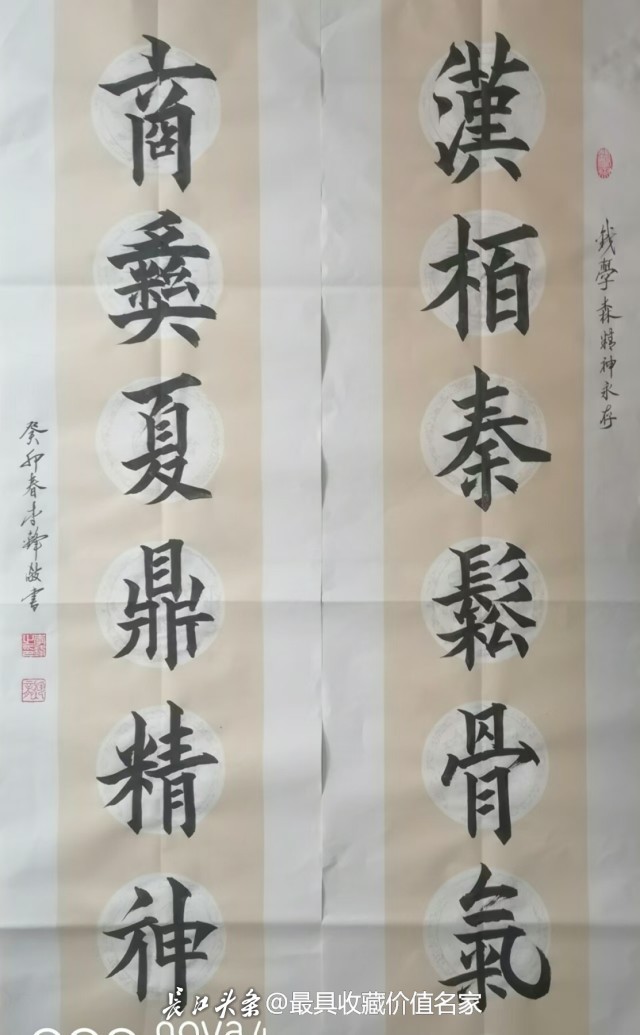 钱學森精神永存
漢栢秦鬆骨氣
商彝夏鼎精神
癸卯春李鋒敬書
长江头条@最具收藏价值名家
nova 4